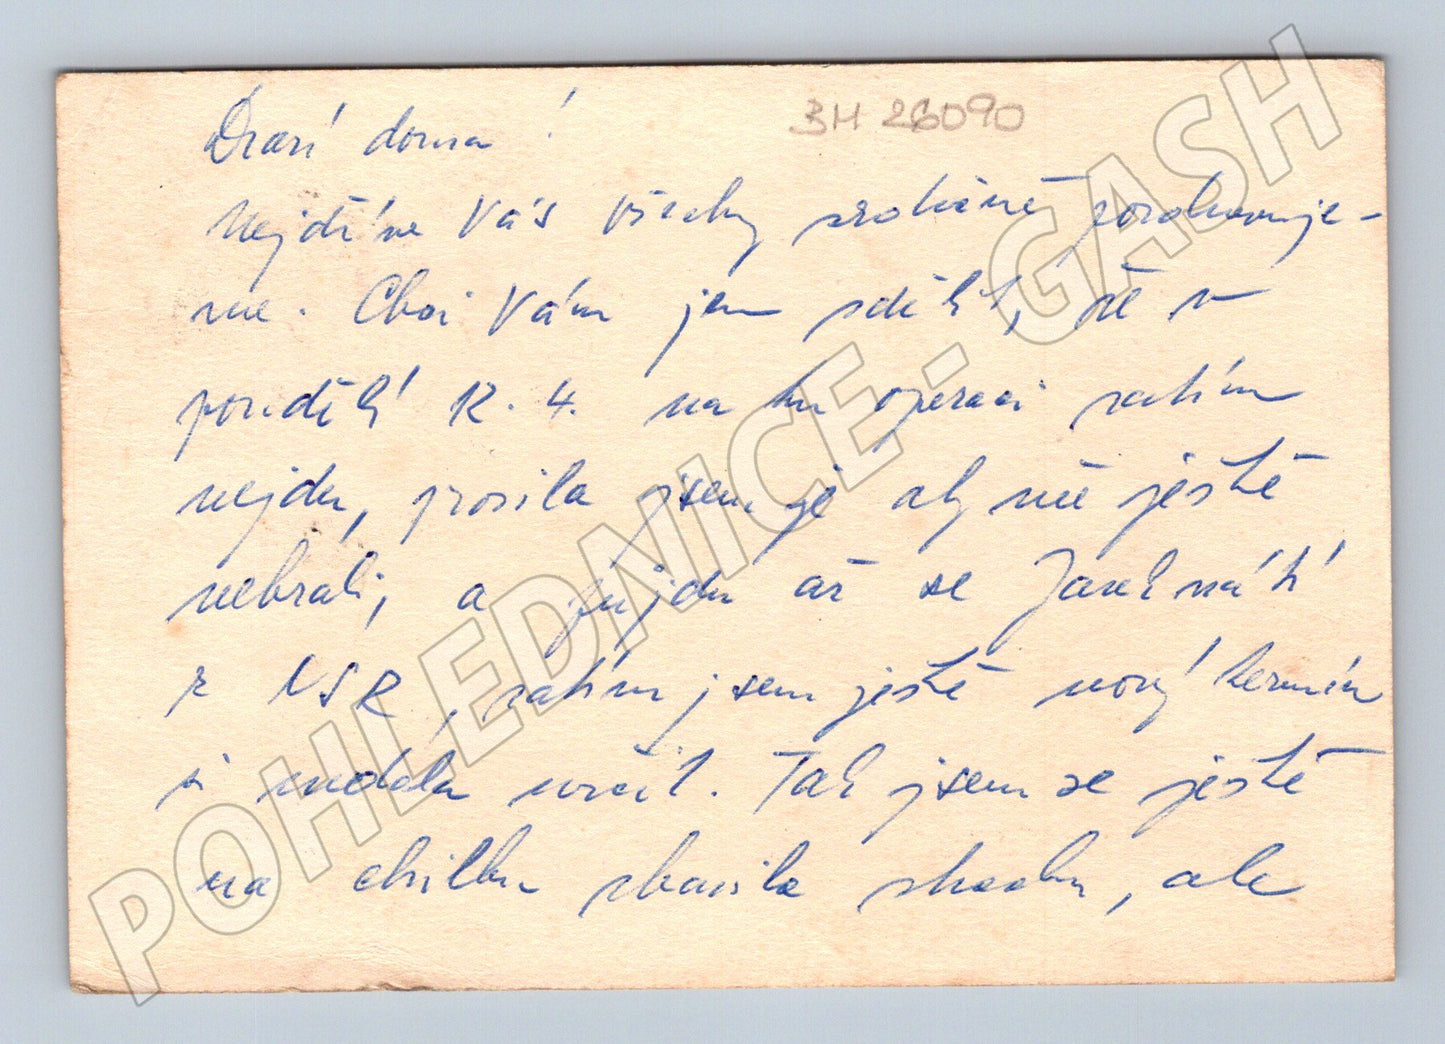 Drazí doma!
3H 26090
Nejdříve Vás všechny srdečně pozdravuje-
me. Chci Vám jen sdělit, že v
pondělí 12. 4. na tu operaci zatím
nejdu, prosila jsem je aby mě ještě
nebrali, a půjdu až se Jarek vrátí
z NSR, zatím jsem ještě nový termín
si nedala určit. Tak jsem se ještě
na chvilku zbavila strachu, ale
POHLEDNICE - GASH